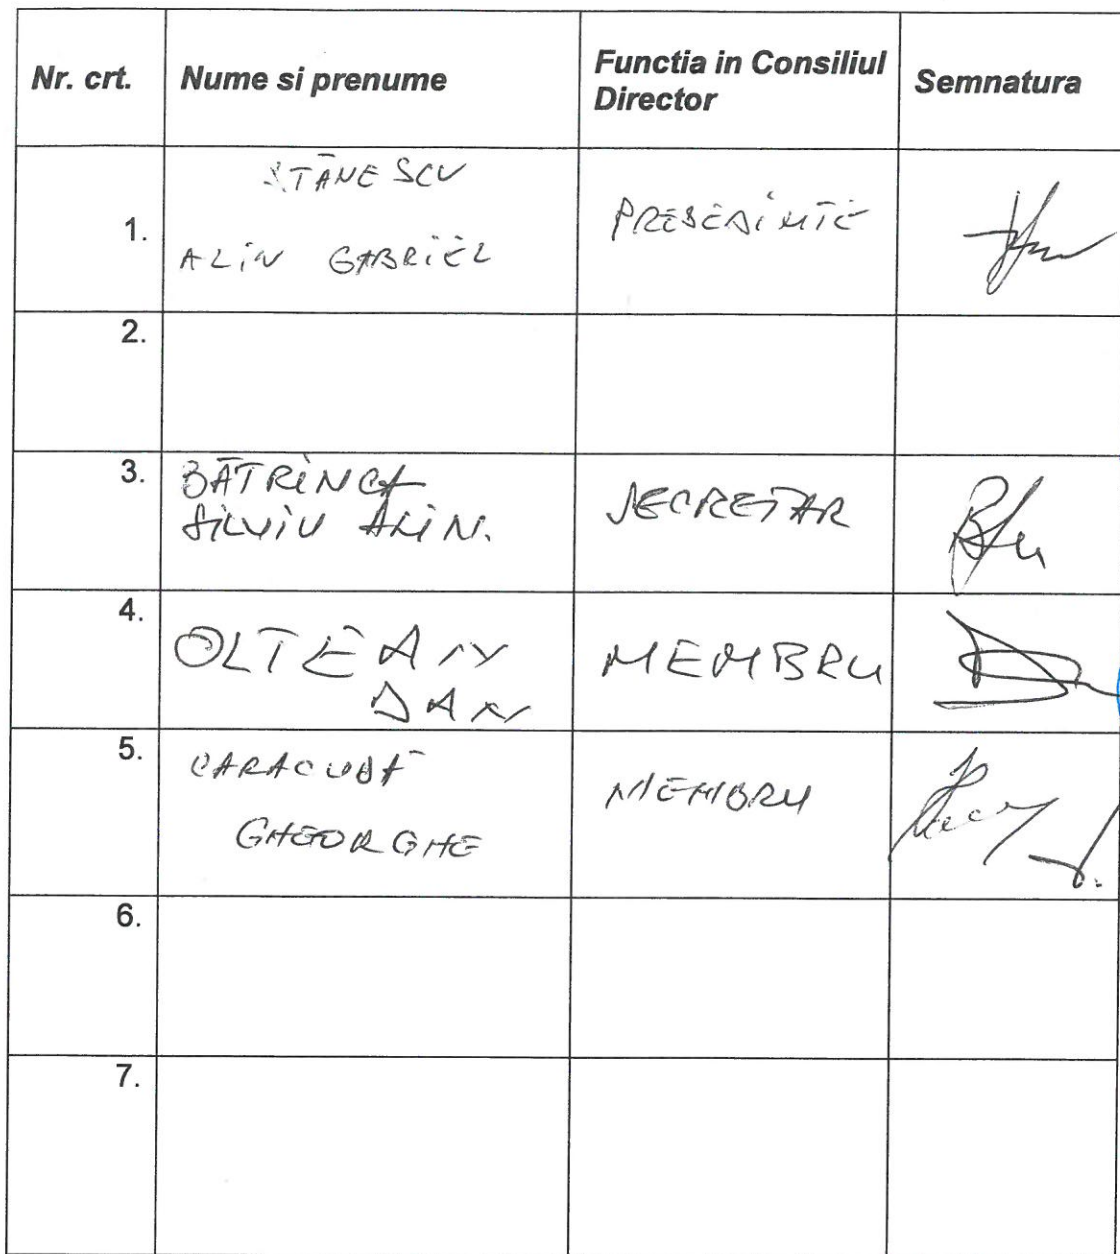 Nr. crt.
Nume si prenume
Functia in Consiliul
Director
Semnatura
1.
STĂNESCU
ALIN GABRIEL
PREȘEDINTE
2.
3.
BĂTRÎNCA
SILVIU ALIN.
SECRETAR
4.
OLTEAN
DAN
MEMBRU
5.
GHEORGHE
MEMBRU
6.
7.